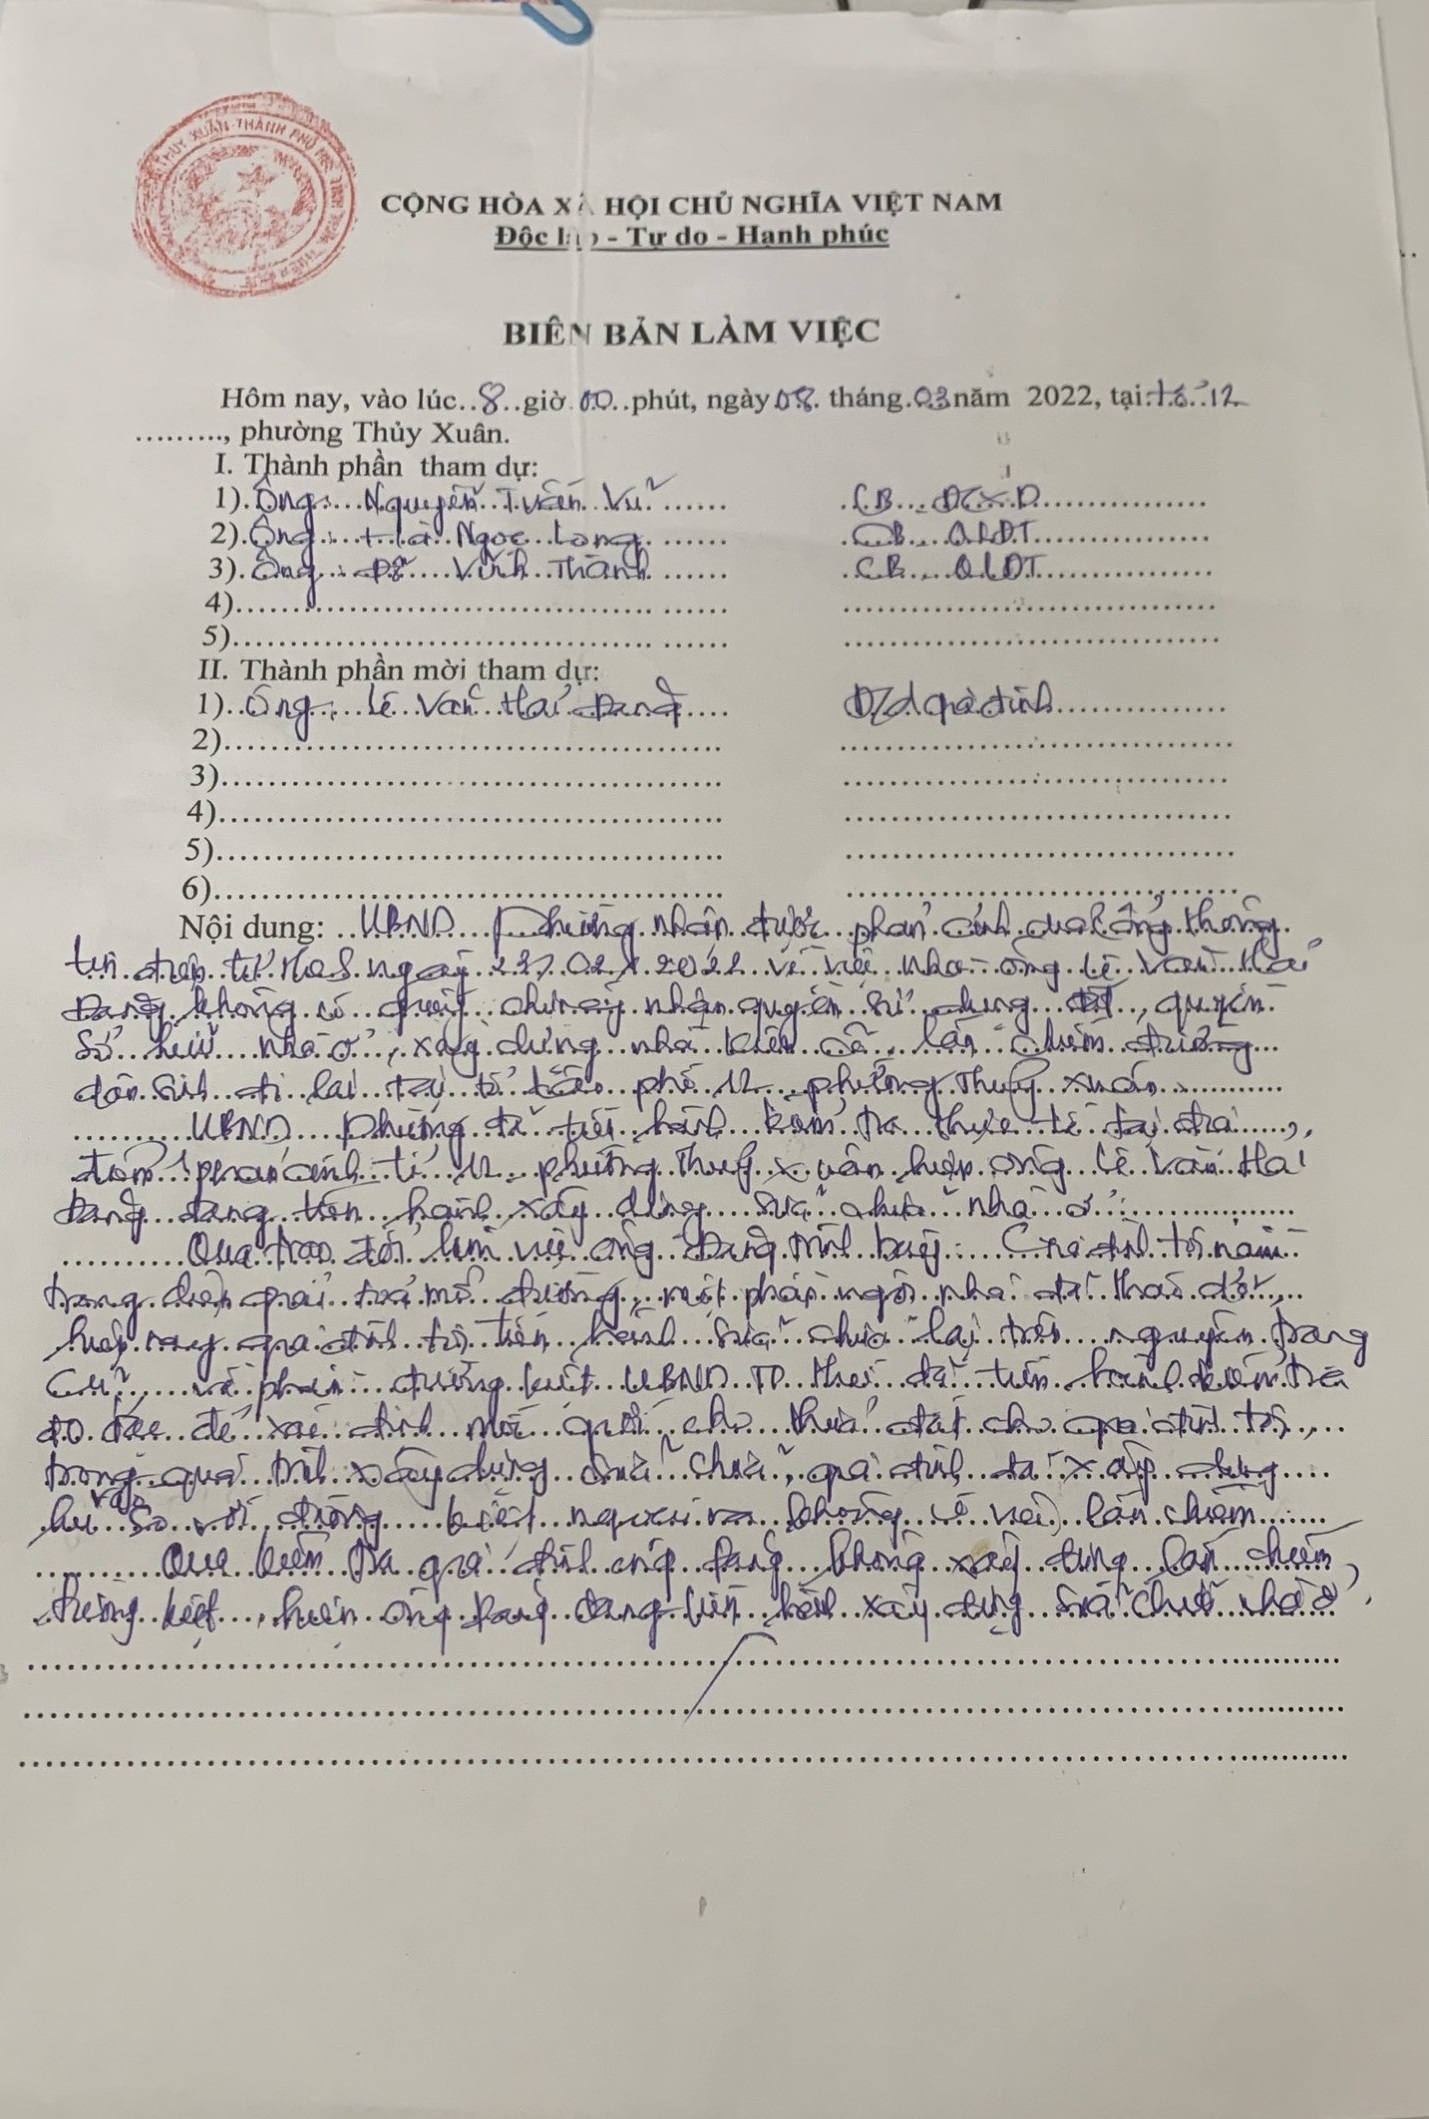 THỦY XUÂN-THÀNH PHỐ
CỘNG HÒA XÃ HỘI CHỦ NGHĨA VIỆT NAM
Độc lập - Tự do - Hạnh phúc
BIÊN BẢN LÀM VIỆC
Hôm nay, vào lúc..8..giờ.00..phút, ngày 08. tháng.03 năm 2022, tại: tổ 12
………, phường Thủy Xuân.
I. Thành phần tham dự:
1). Ông: Nguyễn Tuấn Vũ CB ĐCXD
2). Ông: Hà Ngọc Long CB QLĐT
3). Ông: Đỗ Vĩnh Thành CB QLĐT
4)
5)
II. Thành phần mời tham dự:
1) Ông: Lê Văn Hải Đăng Đ/d gia đình
2)
3)
4)
5)
6)
Nội dung: UBND phường nhận được phản ánh qua cổng thông
tin ngày 22/02/2022 về việc nhà ông Lê Văn Hải
Đăng không có giấy chứng nhận quyền sử dụng đất, quyền
sở hữu nhà ở, xây dựng nhà kiên cố, lấn chiếm đường
dân sinh đi lại tại tổ dân phố 12 phường Thủy Xuân.
UBND phường đã tiến hành kiểm tra thực tế tại địa
điểm phản ánh tổ 12 phường Thủy Xuân hiện ông Lê Văn Hải
Đăng đang tiến hành xây dựng sửa chữa nhà ở.
Qua trao đổi làm việc ông Đăng trình bày: Gia đình tôi nằm
trong diện giải tỏa mở đường, một phần ngôi nhà đã tháo dỡ,
hiện nay gia đình tôi tiến hành sửa chữa lại trên nguyên trạng
cũ, về phần đường kiệt UBND TP Huế đã tiến hành kiểm tra
đo đạc để xác định mốc giới cho thửa đất cho gia đình tôi,
trong quá trình xây dựng sửa chữa, gia đình đã xây dựng
so với đường kiệt không có việc lấn chiếm
Qua kiểm tra gia đình ông Đăng không xây dựng lấn chiếm
đường kiệt, hiện ông Đăng đang tiến hành xây dựng sửa chữa nhà ở.